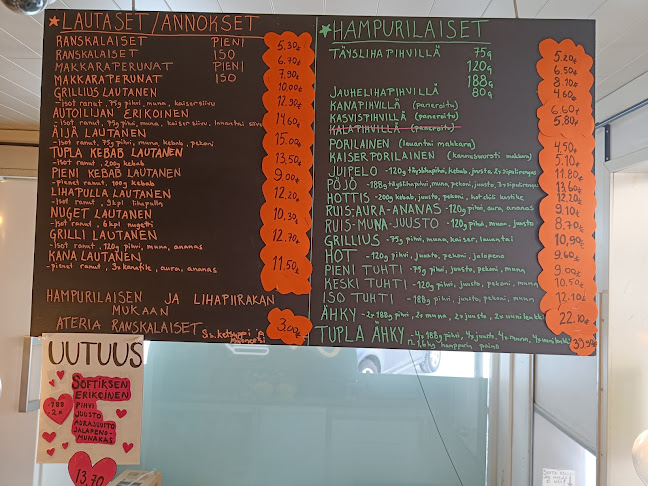 LAUTASET/ANNOKSET
RANSKALAISET PIENI 5.30€
RANSKALAISET ISO 6.70€
MAKKARAPERUNAT PIENI 7.90€
MAKKARAPERUNAT ISO 10.00€
GRILLIUS LAUTANEN 12.90€
-isot ranut, 75g pihvi, muna, kaisersiivu
AUTOILIJAN ERIKOINEN 14.60€
-isot ranut, 75g pihvi, muna, kaiser siivu, lauantai siivu
ÄIJÄ LAUTANEN 15.00€
-isot ranut, 75g pihvi, muna, kebab, pekoni
TUPLA KEBAB LAUTANEN 13.50€
-isot ranut, 200g kebab
PIENI KEBAB LAUTANEN 9.00€
-pienet ranut, 100g kebab
LIHAPULLA LAUTANEN 12.20€
-isot ranut, 9kpl lihapulla
NUGET LAUTANEN 10.30€
-isot ranut, 6kpl nugetti
GRILLI LAUTANEN 12.70€
-isot ranut, 120g pihvi, muna, ananas
KANA LAUTANEN 11.50€
-pienet ranut, 3x kanafile, aura, ananas
HAMPURILAISEN JA LIHAPIIRAKAN
MUKAAN
ATERIA RANSKALAISET 3.00€
Sis. ketsuppi
HAMPURILAISET
TÄYSLIHAPIHVILLÄ 75g 5.20€
120g 6.50€
188g 8.10€
JAUHELIHAPIHVILLÄ 80g 4.60€
KANAPIHVILLÄ (paneroitu) 6.60€
KASVISPIHVILLÄ (paneroitu) 5.80€
KALAPIHVILLÄ (paneroitu)
PORILAINEN (lauantai makkara) 4.50€
KAISERPORILAINEN 5.10€
JUIPELO -120g täyslihapihvi, kebab, juusto, 2x sipulirengas 11.80€
PÖJÖ -188g täyslihapihvi, muna, pekoni, juusto, 3x sipulirengas 13.60€
HOTTIS -200g kebab, juusto, pekoni, hot chili kastike 12.20€
RUIS-AURA-ANANAS -120g pihvi, aura, ananas 9.10€
RUIS-MUNA-JUUSTO -120g pihvi, muna, juusto 8.70€
GRILLIUS -75g pihvi, muna, kaiser, lauantai 10.90€
HOT -120g pihvi, juusto, pekoni, jalapeno 9.60€
PIENI TUHTI -75g pihvi, juusto, pekoni, muna 9.00€
KESKI TUHTI -120g pihvi, juusto, pekoni, muna 10.50€
ISO TUHTI -188g pihvi, juusto, pekoni, muna 12.10€
ÄHKY -2x 188g pihvi, 2x muna, 2x juusto, 2x uunilenkki 22.10€
TUPLA ÄHKY -4x 188g pihvi, 4x juusto, 4x muna, 4x uunilenkki
n. 1,6kg hampurin paino
UUTUUS
SOFTIKSEN
ERIKOINEN
-188
-2
PIHVI
JUUSTO
AURAJUUSTO
JALAPENO-
MUNAKAS
13.70